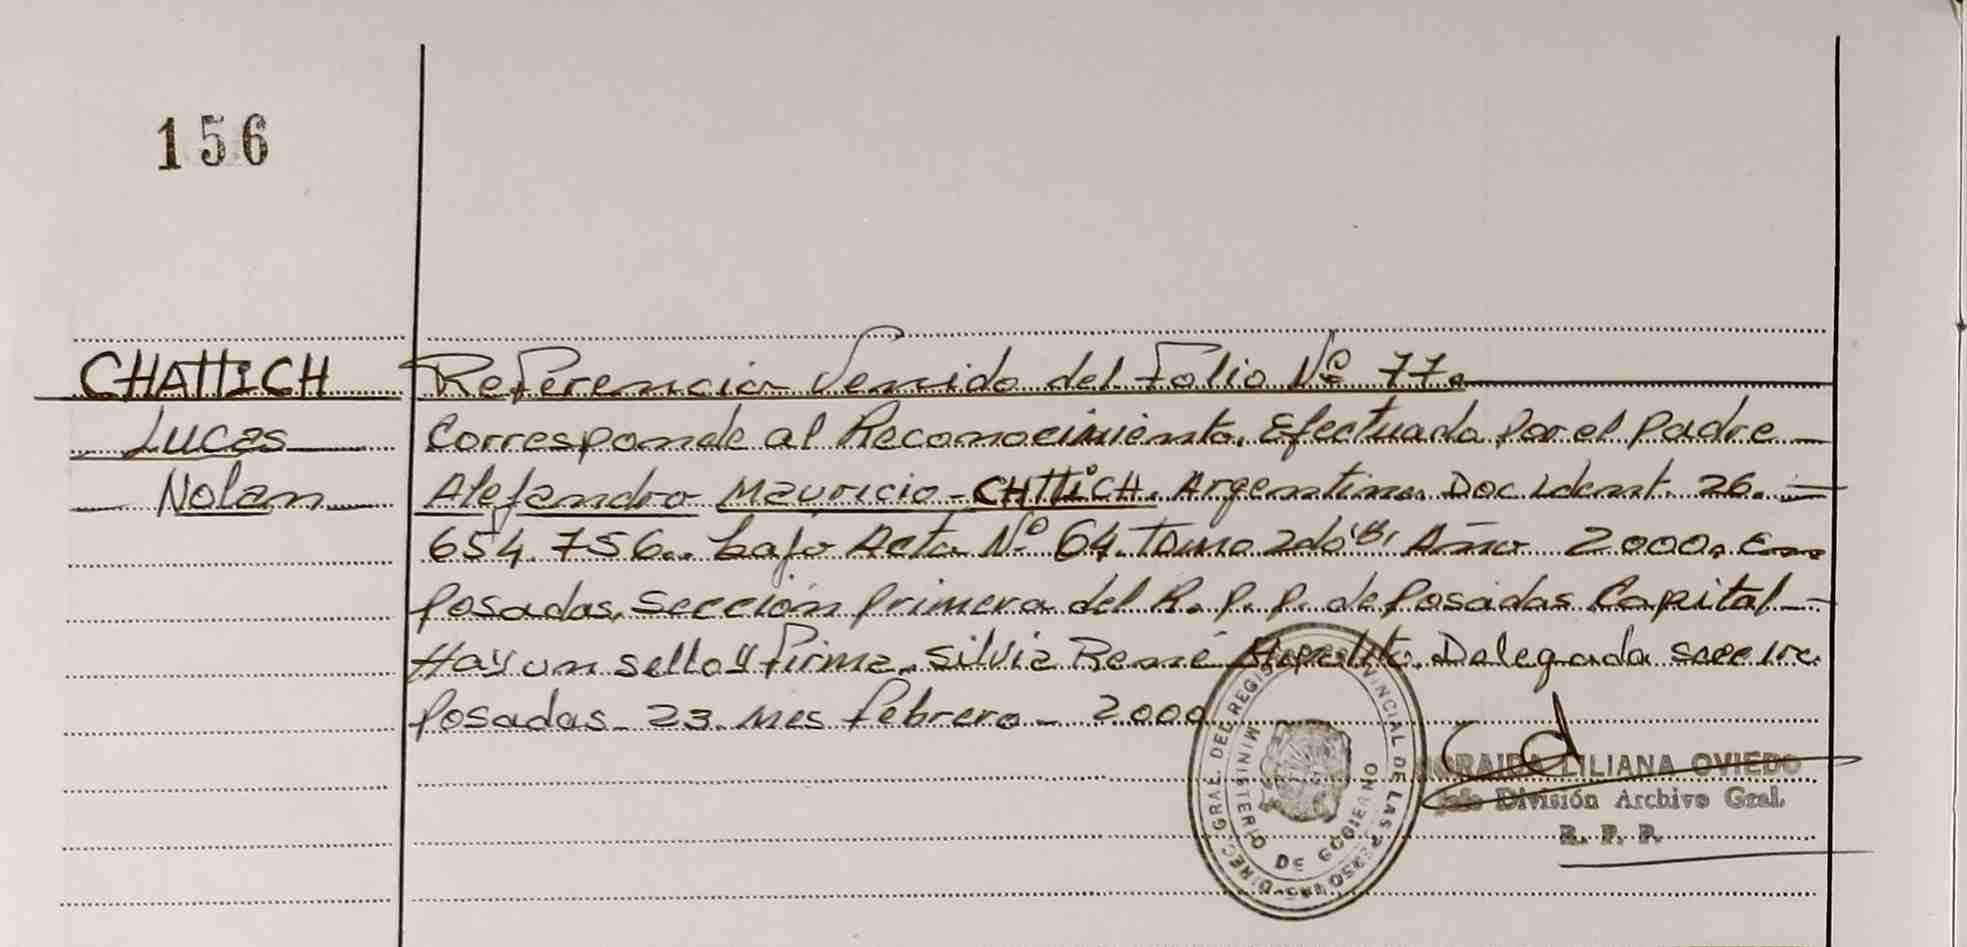 156
CHATTICH
Lucas
Nolan
Referencia Venido del Folio Nº 77.
Corresponde al Reconocimiento. Efectuado Por el Padre
Alejandro Mauricio - CHTTICH. Argentino. Doc Ident. 26.
654.756.. bajo Acta Nº 64. Tomo 2do "B, Año 2000. En
Posadas, Sección Primera del R. P. P. de Posadas Capital
Hay un sello y Firma. Silvia René Delegada Secc 1ra.
Posadas - 23. mes febrero - 2000
DIREC. GRAL. DEL REGIS PROVINCIAL DE LAS PERSONAS
MINISTERIO DE GOBIERNO
LILIANA OVIEDO
Jefe División Archivo Gral.
R. P. P.